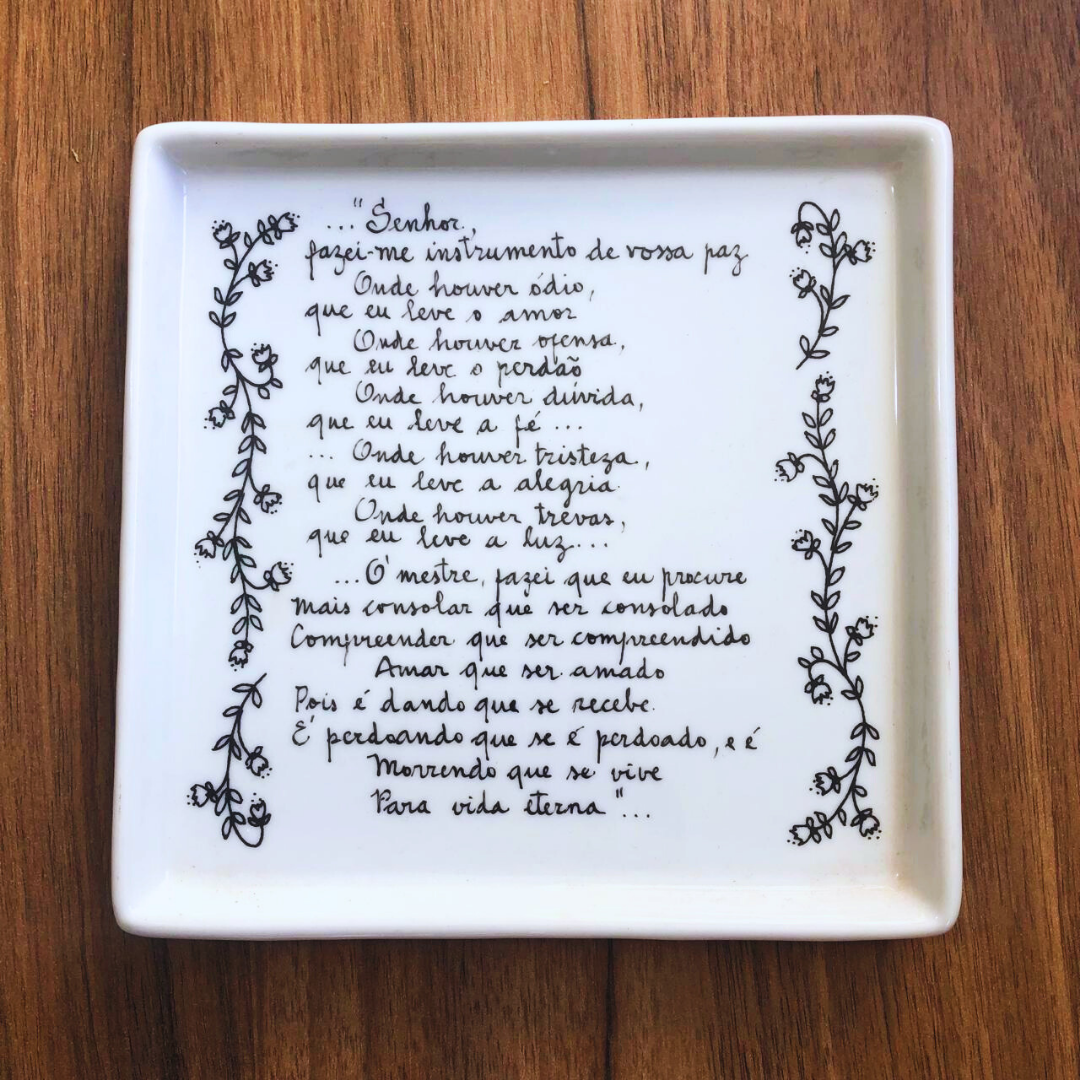 ..." Senhor,
fazei-me instrumento de vossa paz
Onde houver ódio,
que eu leve o amor
Onde houver ofensa,
que eu leve o perdão
Onde houver dúvida,
que eu leve a fé ...
... Onde houver tristeza,
que eu leve a alegria.
Onde houver trevas,
que eu leve a luz...
...Ó mestre, fazei que eu procure
mais consolar que ser consolado
Compreender que ser compreendido
Amar que ser amado
Pois é dando que se recebe.
É perdoando que se é perdoado, e é
Morrendo que se vive
Para vida eterna "...